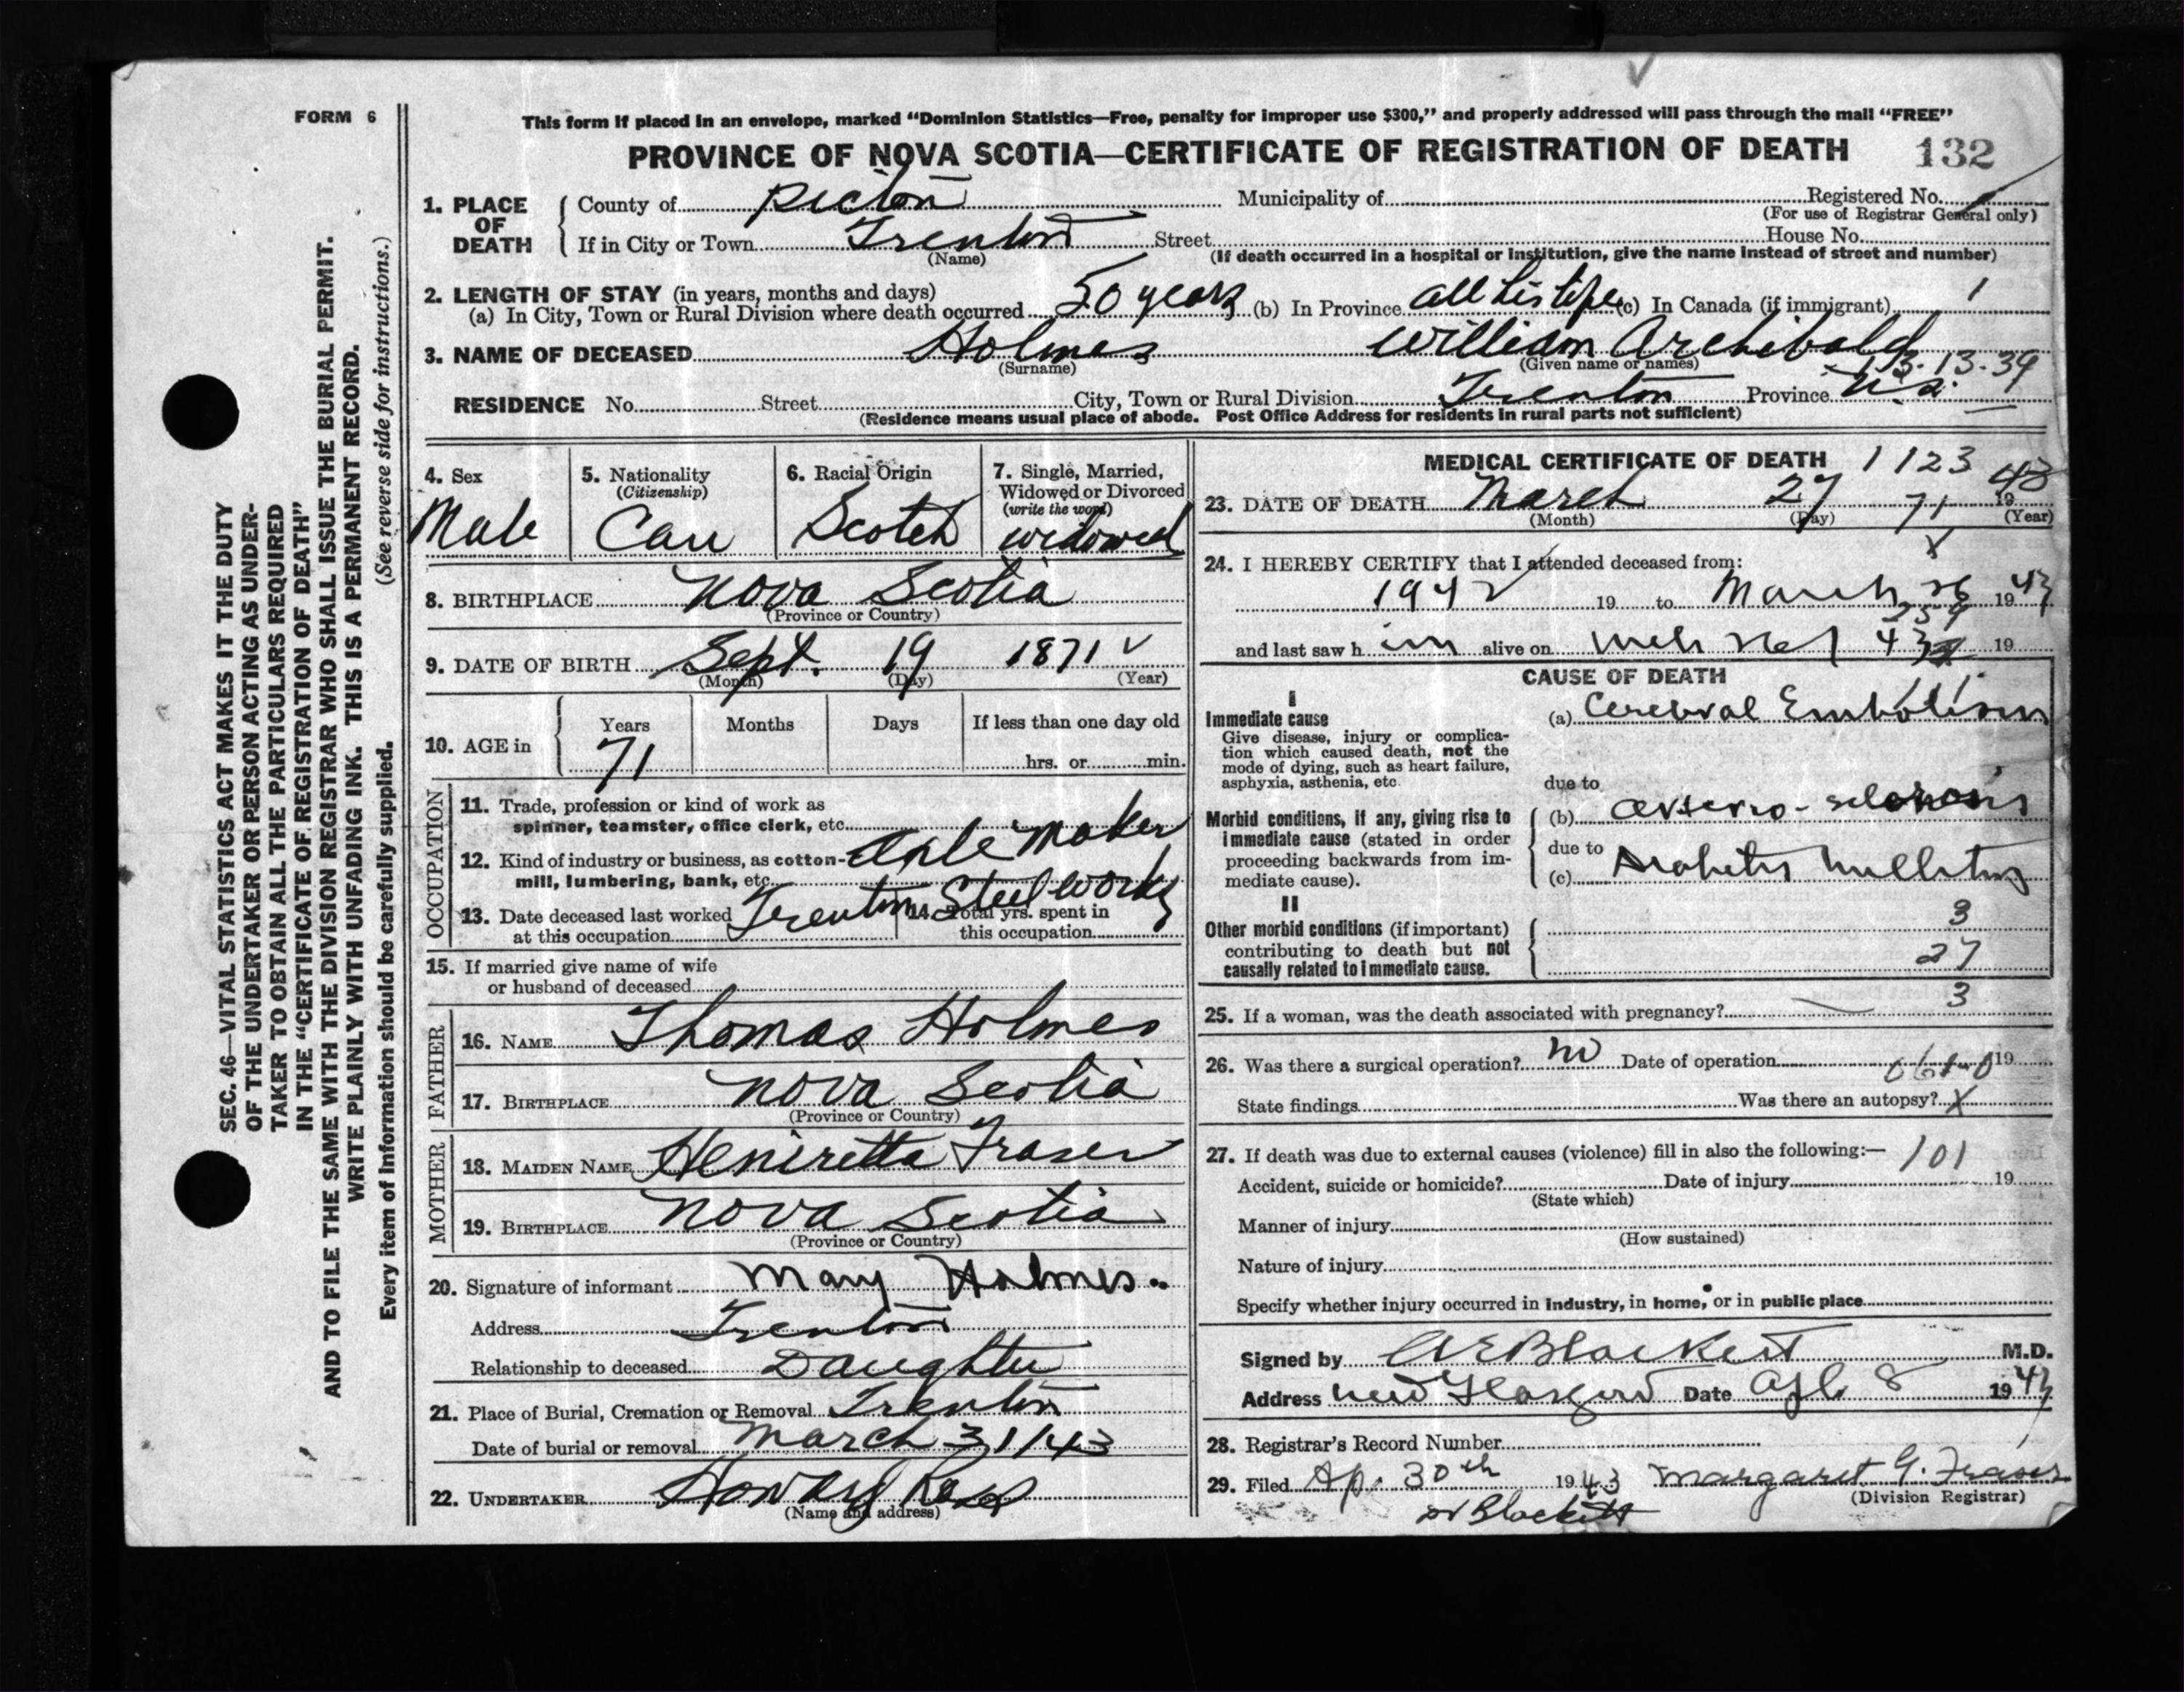 FORM 6
SEC. 46—VITAL STATISTICS ACT MAKES IT THE DUTY
OF THE UNDERTAKER OR PERSON ACTING AS UNDER-
TAKER TO OBTAIN ALL THE PARTICULARS REQUIRED
IN THE "CERTIFICATE OF REGISTRATION OF DEATH"
AND TO FILE THE SAME WITH THE DIVISION REGISTRAR WHO SHALL ISSUE THE BURIAL PERMIT.
WRITE PLAINLY WITH UNFADING INK. THIS IS A PERMANENT RECORD.
Every item of Information should be carefully supplied. (See reverse side for instructions.)
This form if placed in an envelope, marked "Dominion Statistics—Free, penalty for improper use $300," and properly addressed will pass through the mail "FREE"
PROVINCE OF NOVA SCOTIA—CERTIFICATE OF REGISTRATION OF DEATH 132
1. PLACE OF DEATH
County of Pictou Municipality of Registered No.
(For use of Registrar General only)
If in City or Town Trenton Street House No.
(Name) (If death occurred in a hospital or institution, give the name instead of street and number)
2. LENGTH OF STAY (in years, months and days)
(a) In City, Town or Rural Division where death occurred 50 years (b) In Province all his life (c) In Canada (if immigrant) 1
3. NAME OF DECEASED Holmes William Archibald
(Surname) (Given name or names)
13-39
RESIDENCE No. Street City, Town or Rural Division Trenton Province N.S.
(Residence means usual place of abode. Post Office Address for residents in rural parts not sufficient)
4. Sex
Male
5. Nationality
(Citizenship)
Can
6. Racial Origin
Scotch
7. Single, Married,
Widowed or Divorced
(write the word)
widowed
8. BIRTHPLACE Nova Scotia
(Province or Country)
9. DATE OF BIRTH Sept. 19 1871
(Month) (Day) (Year)
10. AGE in
Years Months Days If less than one day old
71 hrs. or min.
OCCUPATION
11. Trade, profession or kind of work as
spinner, teamster, office clerk, etc. Maker
12. Kind of industry or business, as cotton-
mill, lumbering, bank, etc. Trenton Steel works
13. Date deceased last worked
at this occupation
14. Total yrs. spent in
this occupation
15. If married give name of wife
or husband of deceased
FATHER
16. NAME Thomas Holmes
17. BIRTHPLACE Nova Scotia
(Province or Country)
MOTHER
18. MAIDEN NAME Heniretta Fraser
19. BIRTHPLACE Nova Scotia
(Province or Country)
20. Signature of informant Mary Holmes.
Address Trenton
Relationship to deceased Daughter
21. Place of Burial, Cremation or Removal Trenton
Date of burial or removal March 31/43
22. UNDERTAKER Howard Ross
(Name and address)
MEDICAL CERTIFICATE OF DEATH 1123
23. DATE OF DEATH March 27 71 1943
(Month) (Day) (Year)
X
24. I HEREBY CERTIFY that I attended deceased from:
1942 19 to March 26 1943
259
and last saw him alive on Mch 26 43 19
CAUSE OF DEATH
I
Immediate cause
Give disease, injury or complica-
tion which caused death, not the
mode of dying, such as heart failure,
asphyxia, asthenia, etc
(a) Cerebral Embolism
due to
Morbid conditions, if any, giving rise to
immediate cause (stated in order
proceeding backwards from im-
mediate cause).
(b) arterio-sclerosis
due to
(c) Diabetes Mellitus
II
Other morbid conditions (if important)
contributing to death but not
causally related to immediate cause.
3
27
3
25. If a woman, was the death associated with pregnancy?
26. Was there a surgical operation? no Date of operation 19
State findings Was there an autopsy? X
27. If death was due to external causes (violence) fill in also the following:— 101
Accident, suicide or homicide? Date of injury 19
(State which)
Manner of injury
(How sustained)
Nature of injury
Specify whether injury occurred in industry, in home, or in public place
Signed by A E Blackett M.D.
Address New Glasgow Date Apl. 8 1943
28. Registrar's Record Number
29. Filed Ap. 30th 1943 Margaret G. Fraser
(Division Registrar)
Dr Blackett